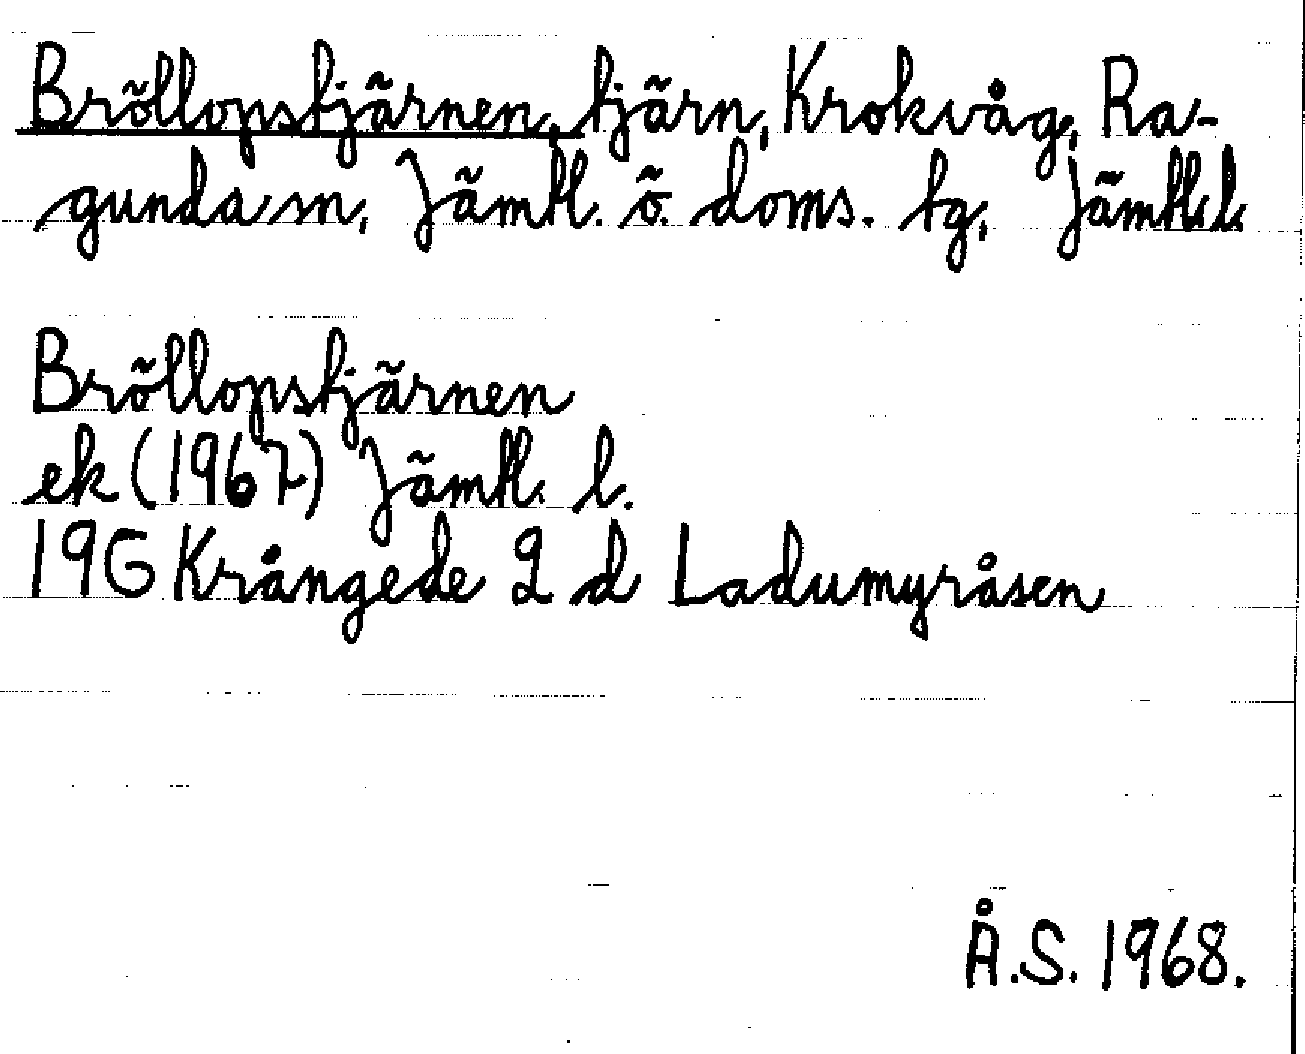 Bröllopstjärnen, tjärn, Krokvåg, Ra-
gunda sn, Jämtl. ö. doms. tg, Jämtl.l.
Bröllopstjärnen
ek (1967) Jämtl. l.
19G Krångede 2 d Ladumyråsen
Å.S. 1968.